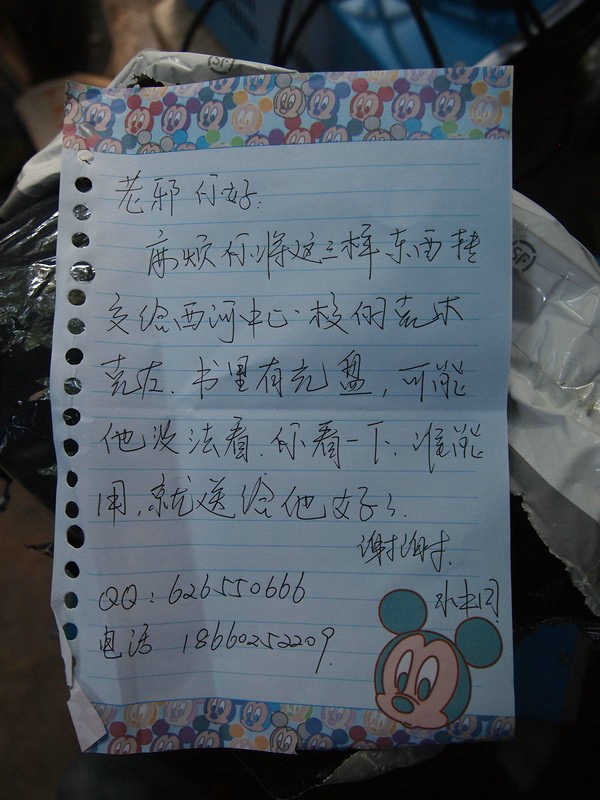 老邪你好:
麻烦你将这三样东西转
交给西河中心校的克木
克左.书里有光盘,可能
他没法看.你看一下.谁能
用,就送给他好了.
谢谢.
QQ:626550666
电话 18660252209.